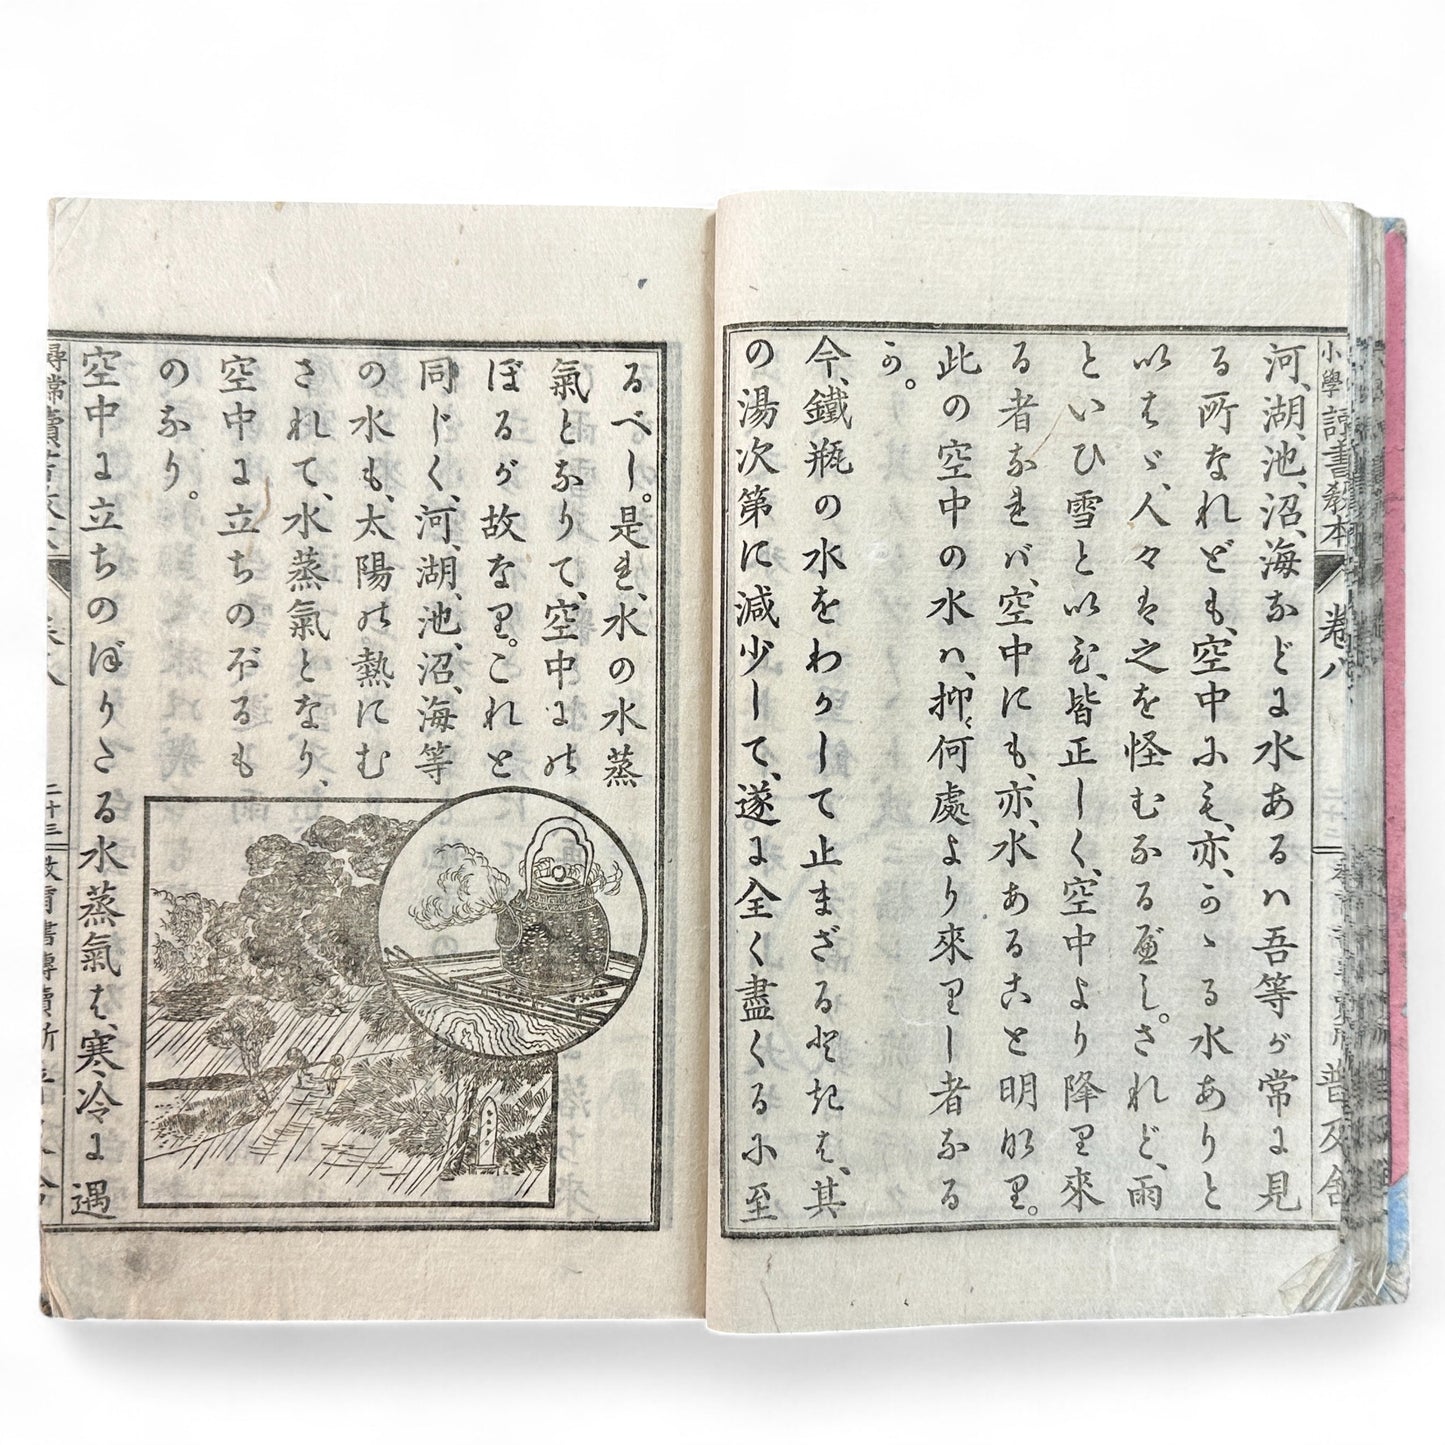 小學讀書教本
卷八
二十二
普及舍
河、湖、池、沼、海などに水あるハ吾等が常に見
る所なれども、空中にも、亦、かゝる水ありと
いはゞ、人々は之を怪むなるべし。されど、雨
といひ雪と以ひ、皆正しく、空中より降り來
る者なれバ、空中にも、亦、水あること明なり。
此の空中の水ハ、抑〻何處より來りし者なる
か。
今、鐵瓶の水をわかして止まざるときは、其
の湯次第に減少して、遂に全く盡くるに至
るべし。是れ、水の水蒸
氣となりて、空中にの
ぼるが故なり。これと
同じく、河、湖、池、沼、海等
の水も、太陽の熱にむ
されて、水蒸氣となり、
空中に立ちのぼるも
のなり。
空中に立ちのぼりたる水蒸氣は、寒冷に遇
尋常
二十三